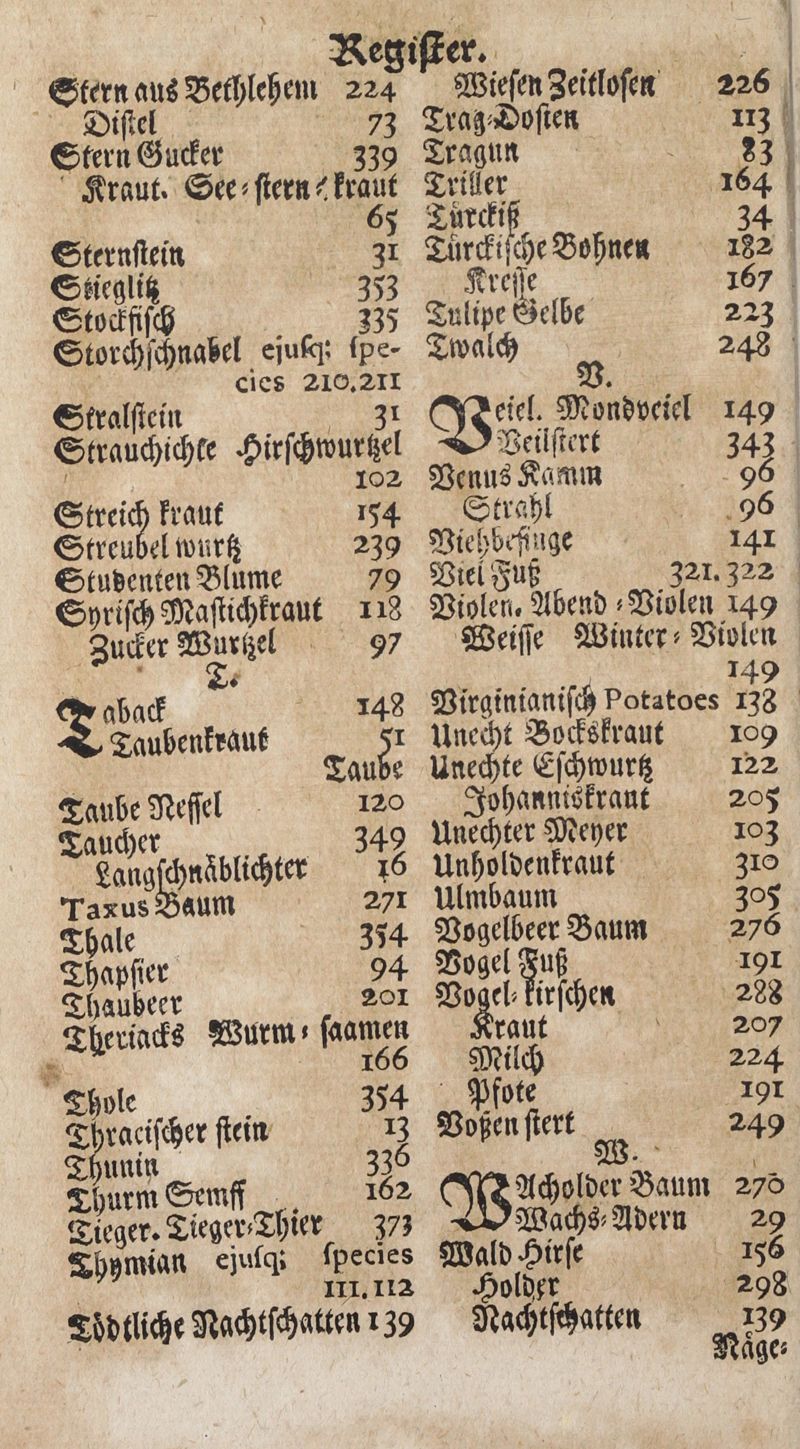 Register.
Stern aus Bethlehem 224
Distel 73
Stern Gucker 339
Kraut. See⸗stern⸗kraut
65
Sternstein 31
Stieglitz 353
Stockfisch 335
Storchschnabel ejusq; spe-
cies 210.211
Stralstein 31
Strauchichte Hirschwurtzel
102
Streich kraut 154
Streubel wurtz 239
Studenten Blume 79
Syrisch Mastichkraut 118
Zucker Wurtzel 97
T.
Taback 148
Taubenkraut 51
Taube
Taube Nessel 120
Taucher 349
Langschnäblichter 16
Taxus Baum 271
Thale 354
Thapsier 94
Thaubeer 201
Theriacks Wurm⸗saamen
166
Thole 354
Thracischer stein 13
Thunin 336
Thurm Semff 162
Tieger. Tieger⸗Thier 373
Thymian ejusq; species
111.112
Tödtliche Nachtschatten 139
Wiesen Zeitlosen 226
Trag⸗Dosten 113
Tragun 83
Triller 164
Türckiß 34
Türckische Bohnen 182
Kresse 167
Tulipe Gelbe 223
Twalch 248
V.
Veiel. Mondveiel 149
Veilstert 343
Venus Kamm 96
Strahl 96
Viehbesinge 141
Viel Fuß 321.322
Violen. Abend⸗Violen 149
Weisse Winter⸗Violen
149
Virginianisch Potatoes 138
Unecht Bockskraut 109
Unechte Eschwurtz 122
Johanniskraut 205
Unechter Meyer 103
Unholdenkraut 310
Ulmbaum 305
Vogelbeer Baum 276
Vogel Fuß 191
Vogel⸗kirschen 288
Kraut 207
Milch 224
Pfote 191
Voßen stert 249
W.
WAcholder Baum 270
Wachs⸗Adern 29
Wald Hirse 156
Holder 298
Nachtschatten 139
Näge⸗